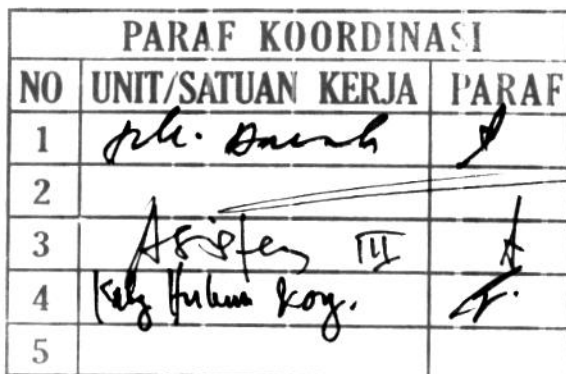 PARAF KOORDINASI
NO UNIT/SATUAN KERJA PARAF
1 Daerah
2
3 Asisten III
4 Hukum
5